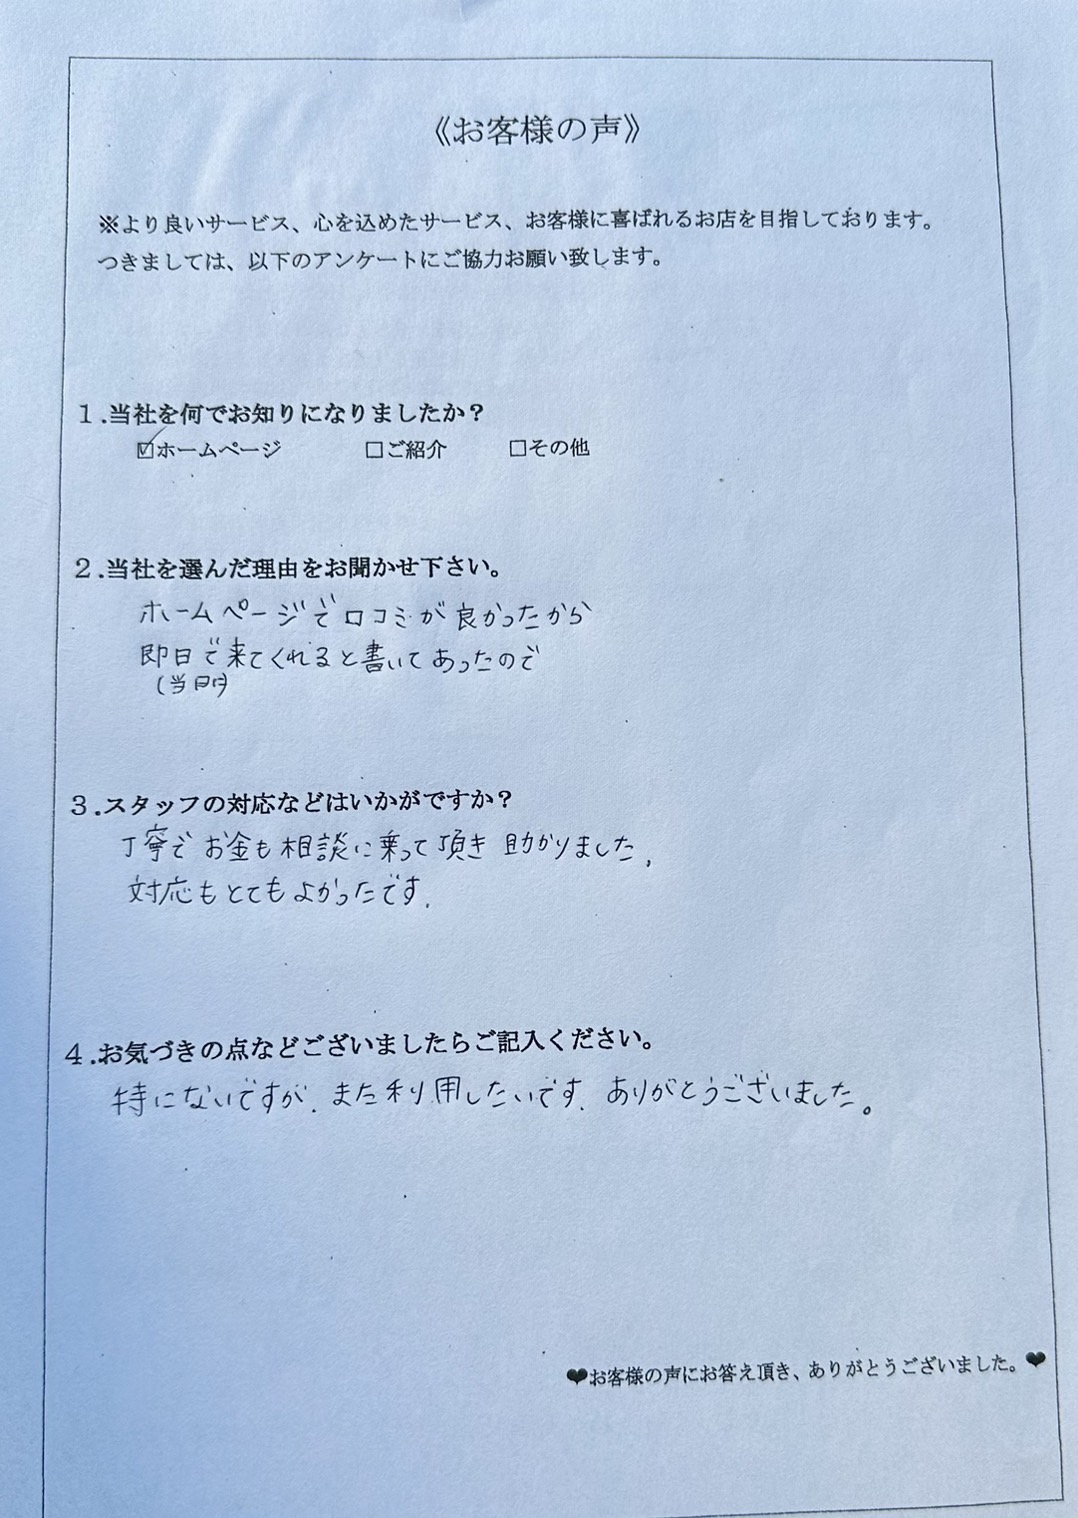 《お客様の声》
※より良いサービス、心を込めたサービス、お客様に喜ばれるお店を目指しております。
つきましては、以下のアンケートにご協力お願い致します。
１.当社を何でお知りになりましたか？
☑ホームページ　□ご紹介　□その他
２.当社を選んだ理由をお聞かせ下さい。
ホームページで口コミが良かったから
即日で来てくれると書いてあったので
(当日)
３.スタッフの対応などはいかがですか？
丁寧でお金も相談に乗って頂き助かりました。
対応もとてもよかったです。
４.お気づきの点などございましたらご記入ください。
特にないですが、また利用したいです。ありがとうございました。
❤お客様の声にお答え頂き、ありがとうございました。❤